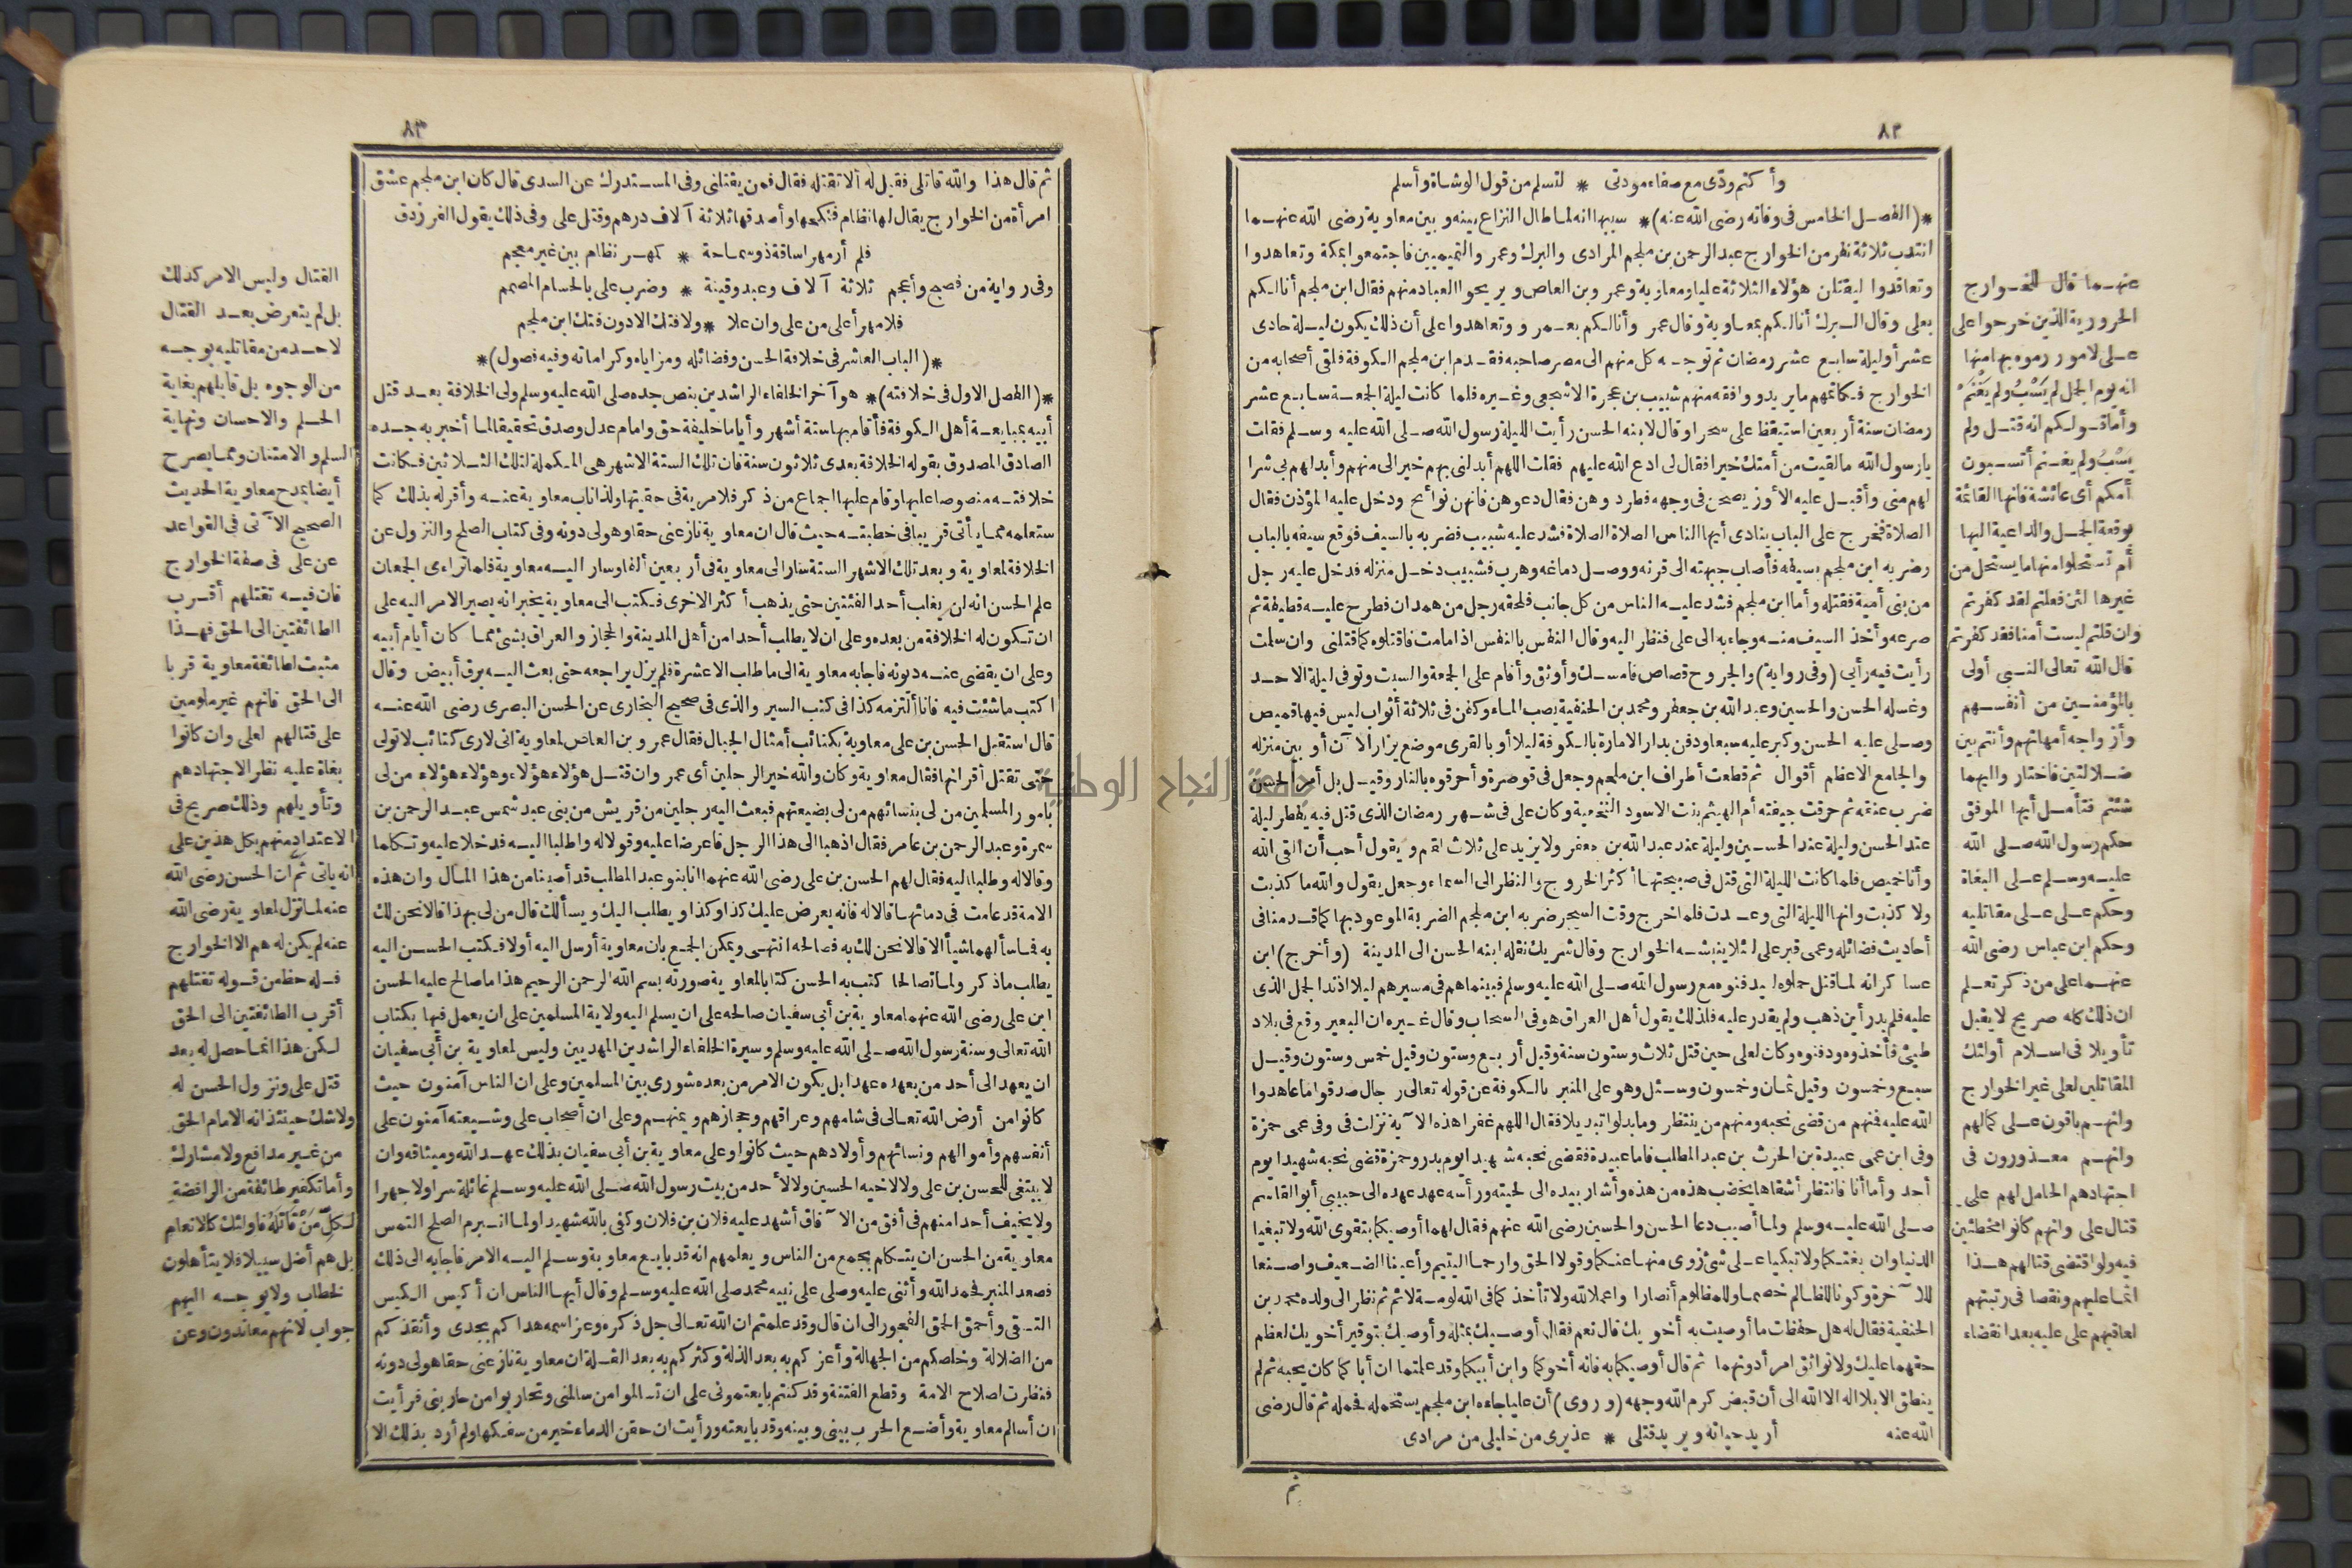 ٨٢
وأكتم ودّى مع صفاء مودتى * لتسلم من قول الوشاة وأسلم
*(الفصل الخامس فى وفاته رضى الله عنه)* سببها انه لما طال النزاع بينه وبين معاوية رضى الله عنهما
انتدب ثلاثة نفر من الخوارج عبد الرحمن بن ملجم المرادى والبرك وعمرو التميميين فاجتمعوا بمكة وتعاهدوا
وتعاقدوا ليقتلن هؤلاء الثلاثة عليا ومعاوية وعمرو بن العاص ويريحوا العباد منهم فقال ابن ملجم أنا لكم
بعلى وقال البرك أنا لكم بمعاوية وقال عمرو أنا لكم بعمرو وتعاهدوا على أن ذلك يكون ليلة حادى
عشر أو ليلة سابع عشر رمضان ثم توجه كل منهم الى مصر صاحبه فقدم ابن ملجم الكوفة فلقى أصحابه من
الخوارج فكاتمهم ما يريد ووافقه منهم شبيب بن عجرة الاشجعى وغيره فلما كانت ليلة الجمعة سابع عشر
رمضان سنة أربعين استيقظ على سحرا وقال لابنه الحسن رأيت الليلة رسول الله صلى الله عليه وسلم فقلت
يا رسول الله ما لقيت من أمتك خيرا فقال لى ادع الله عليهم فقلت اللهم أبدلنى بهم خيرا لى منهم وأبدلهم بى شرا
لهم منى وأقبل عليه الأوز يصحن فى وجهه فطردوهن فقال دعوهن فانهن نوائح ودخل عليه المؤذن فقال
الصلاة فخرج على الباب ينادى أيها الناس الصلاة الصلاة فشد عليه شبيب فضربه بالسيف فوقع سيفه بالباب
وضربه ابن ملجم بسيفه فأصاب جبهته الى قرنه ووصل دماغه وهرب فشبيب دخل منزله فدخل عليه رجل
من بنى أمية فقتله وأما ابن ملجم فشد عليه الناس من كل جانب فلحقه رجل من همدان فطرح عليه قطيفة ثم
صرعه وأخذ السيف منه وجاء به الى على فنظر اليه وقال النفس بالنفس اذا مامت فاقتلوه كما قتلنى وان سلمت
رأيت فيه رأيى (وفى رواية) والجروح قصاص فامسك وأوثق وأقام على الجمعة والسبت وتوفى ليلة الاحد
وغسله الحسن والحسين وعبد الله بن جعفر ومحمد بن الحنفية يصب الماء وكفن فى ثلاثة أثواب ليس فيها قميص
وصلى عليه الحسن وكبر عليه سبعا ودفن بدار الامارة بالكوفة ليلا أو بالغرى موضع يزار الآن أو بين منزله
والجامع الاعظم أقوال ثم قطعت أطراف ابن ملجم وجعل فى قوصرة وأحرقوه بالنار وقيل بل أمر الحسن
ضرب عنقه ثم حرقت جيفته أم الهيثم بنت الاسود النخعية وكان على فى شهر رمضان الذى قتل فيه يفطر ليلة
عند الحسن وليلة عند الحسين وليلة عند عبد الله بن جعفر ولا يزيد على ثلاث لقم ويقول أحب أن ألقى الله
وأنا خميص فلما كانت الليلة التى قتل فى صبيحتها أكثر الخروج والنظر الى السماء وجعل يقول والله ما كذبت
ولا كذبت وانها الليلة التى وعدت فلما خرج وقت السحر ضربه ابن ملجم الضربة الموعود بها كما قدمنا فى
أحاديث فضائله وعمى قبر على لئلا ينبشه الخوارج وقال شريك نقله ابنه الحسن الى المدينة (وأخرج) ابن
عساكر انه لما قتل حملوه ليدفنوه مع رسول الله صلى الله عليه وسلم فبينما هم فى مسيرهم ليلا اذ ند الجمل الذى
عليه فلم يدر أين ذهب ولم يقدر عليه فلذلك يقول أهل العراق هو فى السحاب وقال غيره ان البعير وقع فى بلاد
طيئ فأخذوه ودفنوه وكان لعلى حين قتل ثلاث وستون سنة وقيل أربع وستون وقيل خمس وستون وقيل
سبع وخمسون وقيل ثمان وخمسون وسئل وهو على المنبر بالكوفة عن قوله تعالى رجال صدقوا ما عاهدوا
الله عليه فمنهم من قضى نحبه ومنهم من ينتظر وما بدلوا تبديلا فقال اللهم غفرا هذه الآية نزلت فى وفى عمى حمزة
وفى ابن عمى عبيدة بن الحرث بن عبد المطلب فاما عبيدة فقضى نحبه شهيدا يوم بدر وحمزة قضى نحبه شهيدا يوم
أحد وأما أنا فانتظر أشقاها يخضب هذه من هذه وأشار بيده الى لحيته ورأسه عهد عهده الى حبيبى أبو القاسم
صلى الله عليه وسلم ولما أصيب دعا الحسن والحسين رضى الله عنهم فقال لهما أوصيكما بتقوى الله ولا تبغيا
الدنيا وان بغتكما ولا تبكيا على شئ زوى منها عنكما وقولا الحق وارحما اليتيم وأعينا الضعيف واصنعا
للآخرة وكونا للظالم خصما وللمظلوم أنصارا واعملا لله ولا تأخذكما فى الله لومة لائم ثم نظر الى ولده محمد بن
الحنفية فقال له هل حفظت ما أوصيت به أخويك قال نعم فقال أوصيك بمثله وأوصيك بتوقير أخويك لعظم
حقهما عليك ولا تواثق امرا دونهما ثم قال أوصيكما به فانه أخوكما وابن أبيكما وقد علمتما ان أباكما كان يحبه ثم لم
ينطق الا بلا اله الا الله الى أن قبض كرم الله وجهه (وروى) أن عليا جاءه ابن ملجم يستحمله فحمله ثم قال رضى
الله عنه أريد حياته ويريد قتلى * عذيرى من خليلى من مرادى
ثم
عنهما قال للخوارج
الحرورية الذين خرجوا على
على لامور رموه بها منها
انه يوم الجمل لم يَسْبُ ولم يَغْنَمْ
وأما قولكم انه قتل ولم
يسْبُ ولم يغنم أتسبون
أمكم أى عائشة فانها القائمة
بوقعة الجمل والداعية اليها
أم تستحلوا منها ما يستحل من
غيرها لئن فعلتم لقد كفرتم
وان قلتم ليست أمنا فقد كفرتم
قال الله تعالى النبى أولى
بالمؤمنين من أنفسهم
وأزواجه أمهاتهم وأنتم بين
ضلالتين فاختاروا ايهما
شئتم فتأمل أيها الموفق
حكم رسول الله صلى الله
عليه وسلم على البغاة
وحكم على على مقاتليه
وحكم ابن عباس رضى الله
عنهما على من ذكر تعلم
ان ذلك كله صريح لا يقبل
تأويلا فى اسلام أولئك
المقاتلين لعلى غير الخوارج
وانهم باقون على كمالهم
وانهم معذورون فى
اجتهادهم الحامل لهم على
قتال على وانهم كانوا مخطئين
فيه ولو اقتضى قتالهم هذا
اثما عليهم ونقصا فى رتبتهم
لعاقبهم على عليه بعد انقضاء
٨٣
ثم قال هذا والله قاتلى فقيل له ألا تقتله فقال فمن يقتلنى وفى المستدرك عن السدى قال كان ابن ملجم عشق
امرأة من الخوارج يقال لها نظام فنكحها وأصدقها ثلاثة آلاف درهم وقتل على وفى ذلك يقول الفرزدق
فلم أر مهرا ساقه ذو سماحة * كمهر نظام بين غير معجم
وفى رواية من فصيح وأعجم ثلاثة آلاف وعبد وقينة * وضرب على بالحسام المصمم
فلا مهر أعلى من على وان علا * ولا فتك الا دون فتك ابن ملجم
*(الباب العاشر فى خلافة الحسن وفضائله ومزاياه وكراماته وفيه فصول)*
*(الفصل الاول فى خلافته)* هو آخر الخلفاء الراشدين بنص جده صلى الله عليه وسلم ولى الخلافة بعد قتل
أبيه بمبايعة أهل الكوفة فأقام بها ستة أشهر وأياما خليفة حق وامام عدل وصدق تحقيقا لما أخبر به جده
الصادق المصدوق بقوله الخلافة بعدى ثلاثون سنة فان تلك الستة الاشهر هى المكملة لتلك الثلاثين فكانت
خلافته منصوصا عليها وقام عليها اجماع من ذكر فلا مرية فى حقيتها ولذا ناب معاوية عنه وأقر له بذلك كما
ستعلمه مما يأتى قريبا فى خطبته حيث قال ان معاوية نازعنى حقا وهو لى دونه وفى كتاب الصلح والنزول عن
الخلافة لمعاوية وبعد تلك الاشهر الستة سار الى معاوية فى أربعين ألفا وسار اليه معاوية فلما تراءى الجمعان
علم الحسن انه لن يغلب أحد الفئتين حتى يذهب أكثر الاخرى فكتب الى معاوية يخبر انه يصير الامر اليه على
ان تكون له الخلافة من بعده وعلى ان لا يطلب أحدا من أهل المدينة والحجاز والعراق بشئ مما كان أيام أبيه
وعلى ان يقضى عنه ديونه فاجابه معاوية الى ما طلب الا عشرة فلم يزل يراجعه حتى بعث اليه برق أبيض وقال
اكتب ما شئت فيه فانا ألتزمه كذا فى كتب السير والذى فى صحيح البخارى عن الحسن البصرى رضى الله عنه
قال استقبل الحسن بن على معاوية بكتائب أمثال الجبال فقال عمرو بن العاص لمعاوية انى لارى كتائب لا تولى
حتى تقتل أقرانها فقال معاوية وكان والله خير الرجلين أى عمرو ان قتل هؤلاء هؤلاء وهؤلاء هؤلاء من لى
بامور المسلمين من لى بنسائهم من لى بضيعتهم فبعث اليه رجلين من قريش من بنى عبد شمس عبد الرحمن بن
سمرة وعبد الرحمن بن عامر فقال اذهبا الى هذا الرجل فاعرضا عليه وقولا له واطلبا اليه فدخلا عليه وتكلما
وقالا له وطلبا اليه فقال لهم الحسن بن على رضى الله عنهما انا بنو عبد المطلب قد أصبنا من هذا المال وان هذه
الامة قد عاثت فى دمائها قالا له فانه يعرض عليك كذا وكذا ويطلب اليك ويسألك قال من لى بهذا قالا نحن لك
به فما سألهما شيأ الا قالا نحن لك به فصالحه انتهى ويمكن الجمع بان معاوية أرسل اليه أولا فكتب الحسن اليه
يطلب ما ذكر ولما تصالحا كتب به الحسن كتابا لمعاوية صورته بسم الله الرحمن الرحيم هذا ما صالح عليه الحسن
ابن على رضى الله عنهما معاوية بن أبى سفيان صالحه على ان يسلم اليه ولاية المسلمين على ان يعمل فيها بكتاب
الله تعالى وسنة رسول الله صلى الله عليه وسلم وسيرة الخلفاء الراشدين المهديين وليس لمعاوية بن أبى سفيان
ان يعهد الى أحد من بعده عهدا بل يكون الامر من بعده شورى بين المسلمين وعلى ان الناس آمنون حيث
كانوا من أرض الله تعالى فى شامهم وعراقهم وحجازهم ويمنهم وعلى ان أصحاب على وشيعته آمنون على
أنفسهم وأموالهم ونسائهم وأولادهم حيث كانوا وعلى معاوية بن أبى سفيان بذلك عهد الله وميثاقه وان
لا يبتغى للحسن بن على ولا لاخيه الحسين ولا لأحد من بيت رسول الله صلى الله عليه وسلم غائلة سرا ولا جهرا
ولا يخيف أحدا منهم فى أفق من الآفاق أشهد عليه فلان بن فلان وكفى بالله شهيدا ولما انبرم الصلح التمس
معاوية من الحسن ان يتكلم بجمع من الناس ويعلمهم انه قد بايع معاوية وسلم اليه الامر فاجابه الى ذلك
فصعد المنبر فحمد الله وأثنى عليه وصلى على نبيه محمد صلى الله عليه وسلم وقال أيها الناس ان أكيس الكيس
التقى وأحمق الحمق الفجور الى ان قال وقد علمتم ان الله تعالى جل ذكره وعز اسمه هداكم بجدى وأنقذكم
من الضلالة وخلصكم من الجهالة وأعزكم به بعد الذلة وكثركم به بعد القلة ان معاوية نازعنى حقا هو لى دونه
فنظرت اصلاح الامة وقطع الفتنة وقد كنتم بايعتمونى على ان تسالموا من سالمنى وتحاربوا من حاربنى فرأيت
ان أسالم معاوية وأضع الحرب بينى وبينه وقد بايعته ورأيت ان حقن الدماء خير من سفكها ولم أرد بذلك الا
القتال وليس الامر كذلك
بل لم يتعرض بعد القتال
لاحد من مقاتليه بوجه
من الوجوه بل قابلهم بغاية
الحلم والاحسان ونهاية
السلم والامتنان ومما يصرح
أيضا بمدح معاوية الحديث
الصحيح الآتى فى القواعد
عن على فى صفة الخوارج
فان فيه تقتلهم أقرب
الطائفتين الى الحق فهذا
مثبت لطائفة معاوية قربا
الى الحق فانهم غير ملومين
على قتالهم لعلى وان كانوا
بغاة عليه نظرا لاجتهادهم
وتأويلهم وذلك صريح فى
الاعتداد منهم بكل هذين على
انه يأتى ثَمَّ ان الحسن رضى الله
عنه لما نزل لمعاوية رضى الله
عنه لم يكن له هم الا الخوارج
فله حظ من قوله تقتلهم
أقرب الطائفتين الى الحق
لكن هذا انما حصل له بعد
قتل على ونزول الحسن له
ولا شك حينئذ انه الامام الحق
من غير مدافع ولا مشارك
وأما تكفير طائفة من الرافضة
لكلّ مَنْ قاتَلَهُ فاولئك كالانعام
بل هم أضل سبيلا فلا يتأهلون
لخطاب ولا يوجه اليهم
جواب لانهم معاندون وعن
جامعة النجاح الوطنية